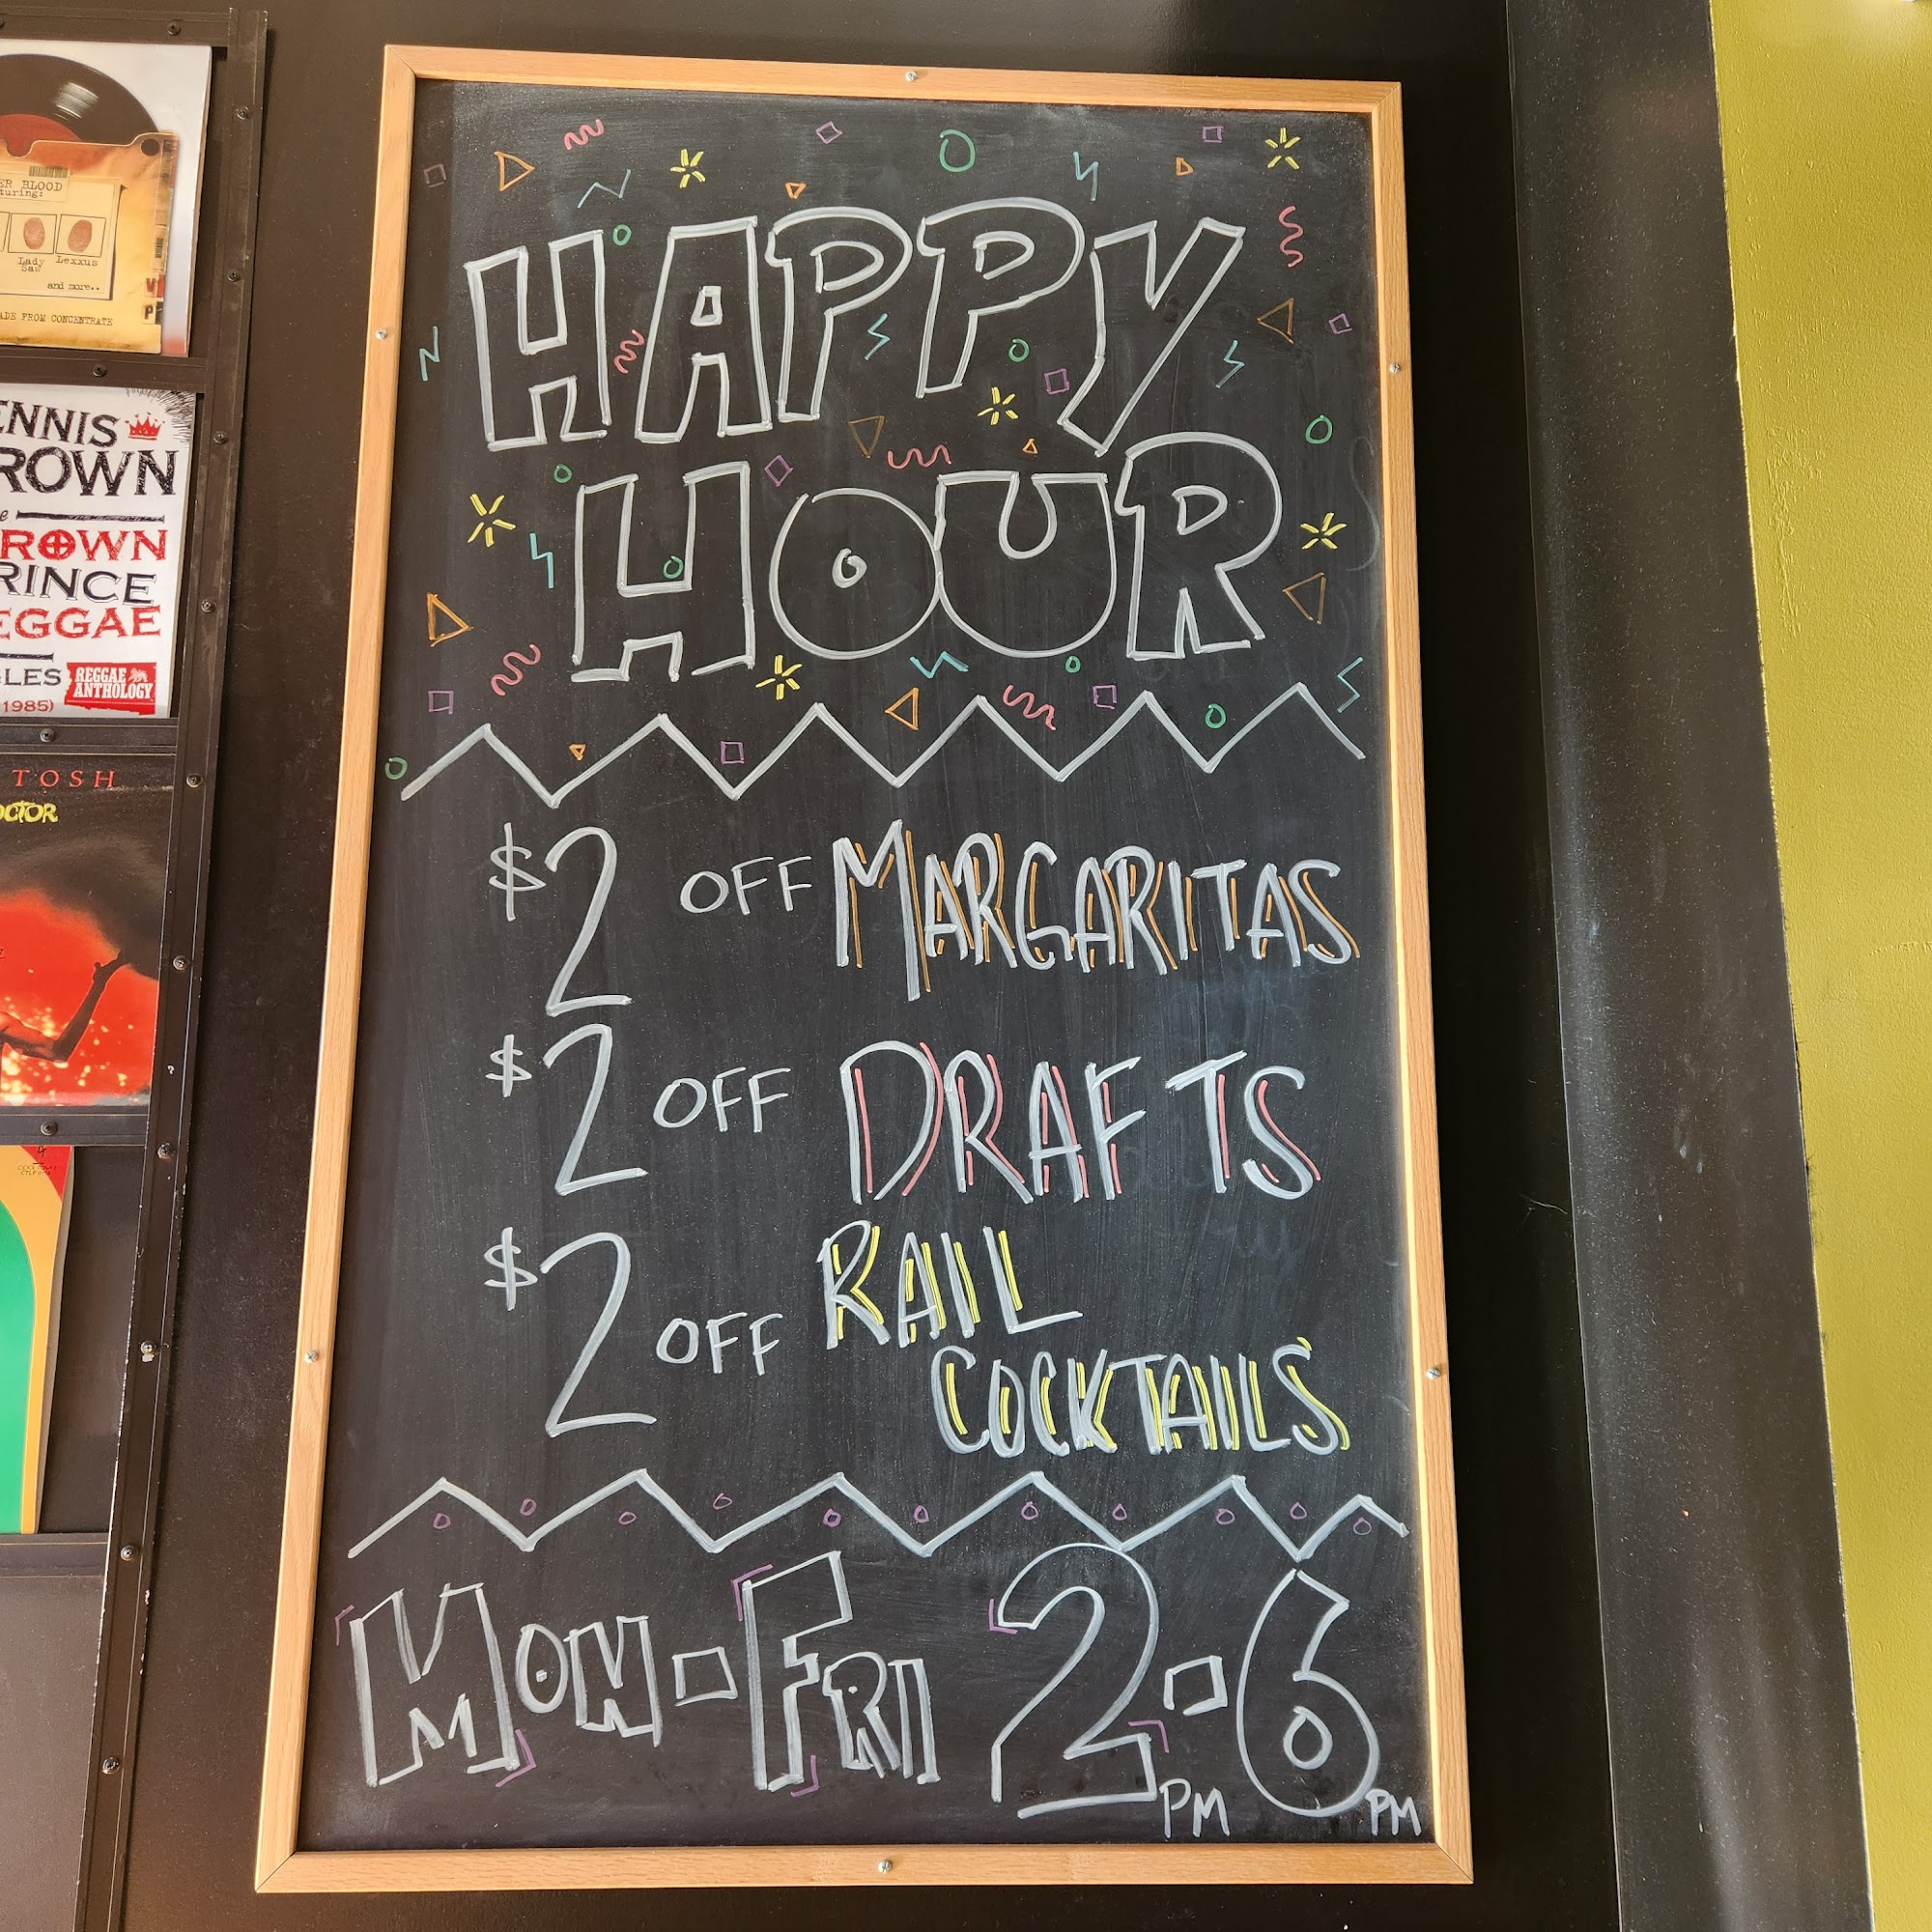 HAPPY
HOUR
$2 OFF MARGARITAS
$2 OFF DRAFTS
$2 OFF RAIL
COCKTAILS
MON-FRI 2PM-6PM
ER BLOOD
turing:
Lady Saw
Lexxus
and more..
ADE FROM CONCENTRATE
ENNIS
ROWN
ROWN
RINCE
EGGAE
LES
REGGAE
ANTHOLOGY
1985)
TOSH
OCTOR